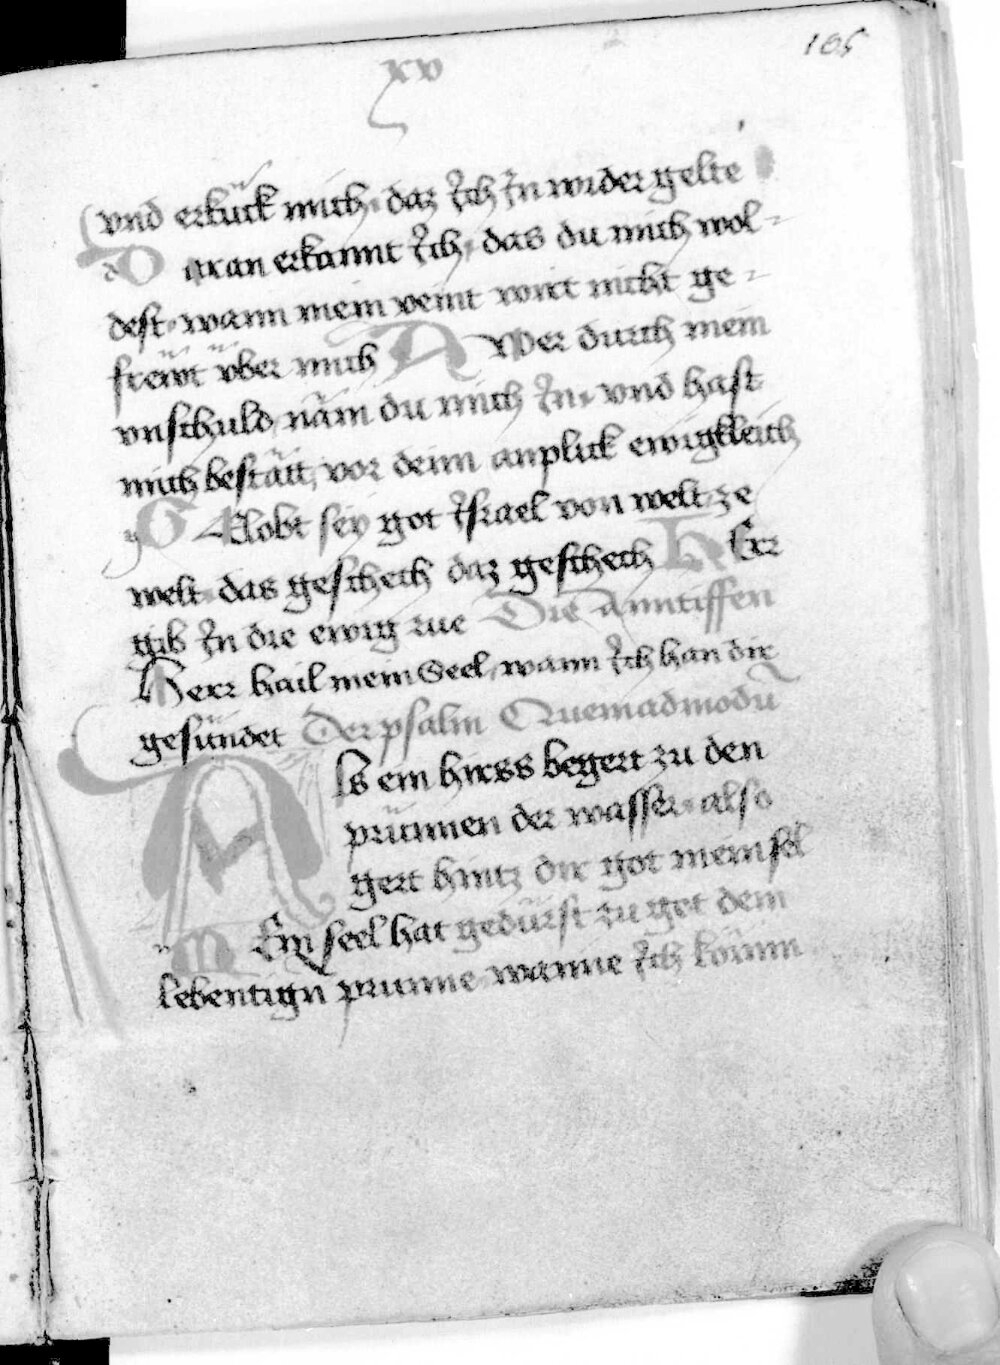 165
xv
vnd erkück mich · daz ich in wider gelte
Daran erkannt ich · das du mich wol-
dest · wann mein veint wirt nicht ge-
frewt vber mich Awer durch mein
vnschuld näm du mich in · vnd hast
mich bestätt, vor deim anplick ewigkleich
Gelobt sey got israel von welt ze
welt · das geschech daz geschech Herr
gib in die ewig rue Die Anntiffen
Herr hail mein Seel, wann ich han dir
gesündet Der psalm Quemadmodū
Als ein hirss begert zu den
prünnen der wasser · also
gert hintz dir got mein sel
Mein seel hat gedürst zu got dem
lebentign prunne · wanne ich kömm